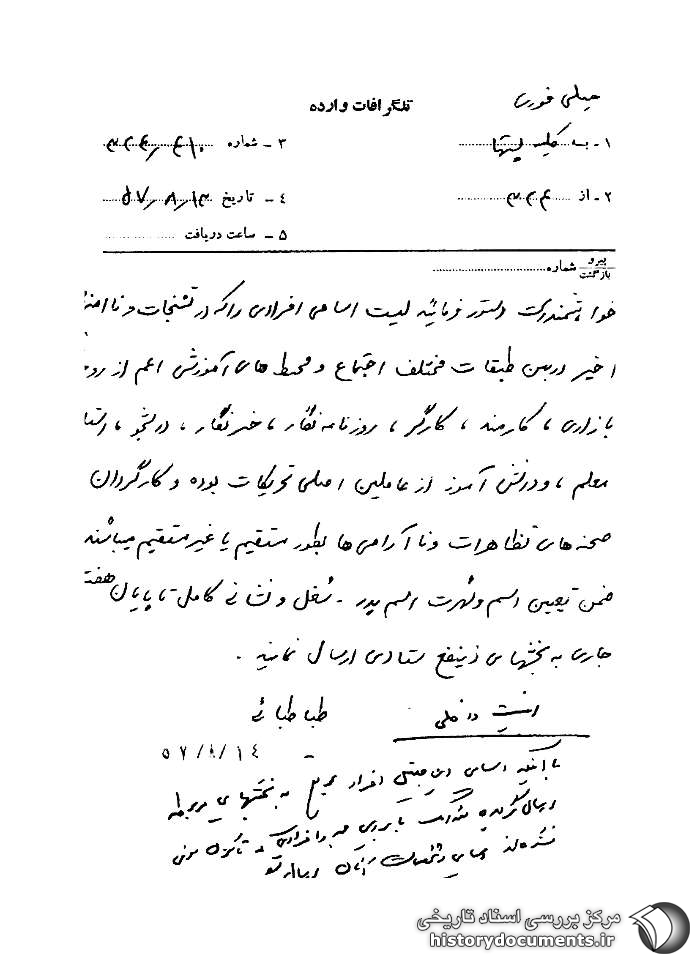 خیلی فوری
تلگرافات وارده
۱ - به کلیه ...
۳ - شماره ۳۲۴/۴۱۰
۲ - از ۳۲۴
۴ - تاریخ ۵۷/۸/۱۳
۵ - ساعت دریافت
پیرو
بازگشت شماره
خواهشمند است دستور فرمائید لیست اسامی افرادی را که در تشنجات و نا
اخیر در بین طبقات مختلف اجتماع و محیط های آموزشی اعم از رو
بازاری ، کارمند ، کارگر ، روزنامه نگار ، خبرنگار ، دانشجو ، استا
معلم ، و دانش آموز از عاملین اصلی تحریکات بوده و کارگردان
صحنه های تظاهرات و نا آرامی ها بطور مستقیم یا غیر مستقیم میباشند
ضمن تعیین اسم و شهرت اسم پدر - شغل و نشانی کامل تا پایان هفته
جاری به بخشهای ذینفع ستادی ارسال نمایند .
امنیت داخلی
طباطبائی
۵۷/۸/۱۴
با آنکه اسامی افراد به بخشهای مربوطه
ارسال گردیده است با بررسی افرادی که تاکنون
نشده اند اسامی و مشخصات آنان
مرکز بررسی اسناد تاریخی
historydocuments.ir